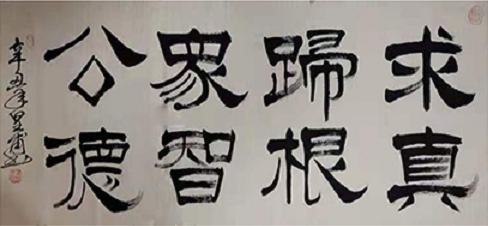 求真
歸根
眾智
公德
辛丑年